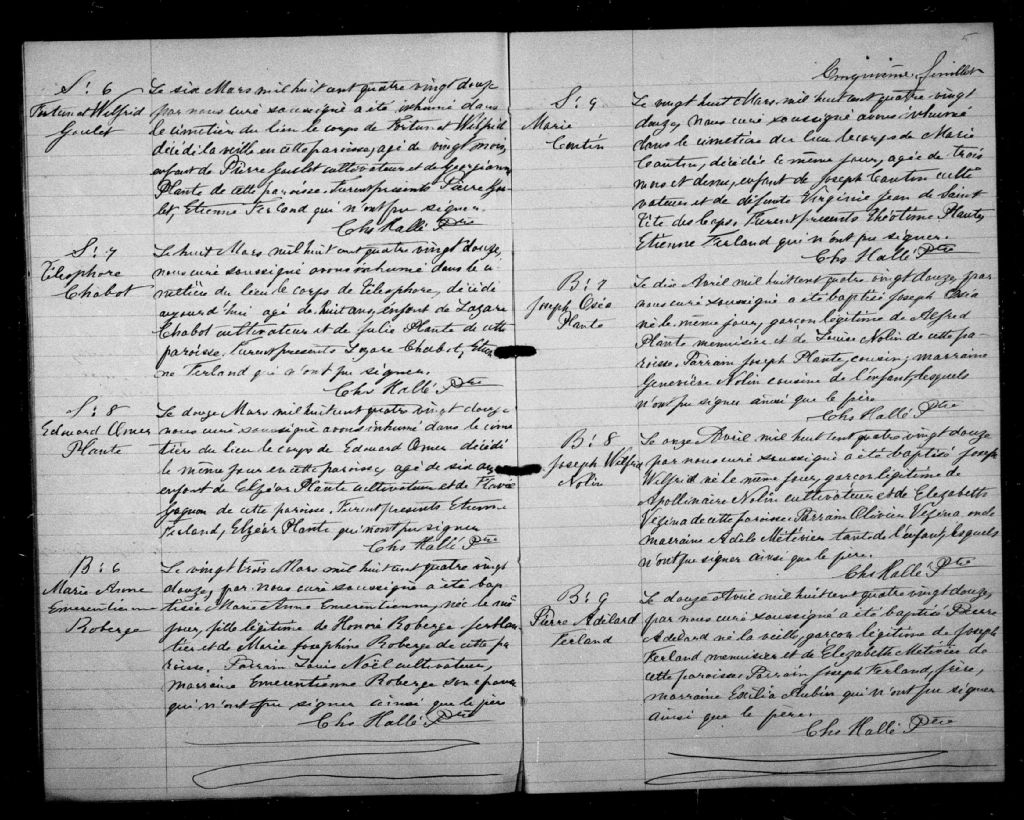 S: 6
Fortunat Wilfrid
Goulet
Le six Mars mil huit cent quatre vingt douze
par nous curé soussigné a été inhumé dans
le cimetière du lieu le corps de Fortunat Wilfrid
décédé la veille en cette paroisse, agé de vingt mois
enfant de Pierre Goulet cultivateur et de Georgianna
Plante de cette paroisse. Furent présents Pierre Gou-
let, Etienne Ferland qui n'ont pu signer.
Chs Hallé Ptre
S: 7
Télesphore
Chabot
Le huit Mars mil huit cent quatre vingt douze,
nous curé soussigné avons inhumé dans le ci-
metière du lieu le corps de Télesphore, décédé
aujourd'hui agé de huit ans, enfant de Lazare
Chabot cultivateur et de Julie Plante de cette
paroisse. Furent présents Lazare Chabot, Etien-
ne Ferland qui n'ont pu signer.
Chs Hallé Ptre
S: 8
Edouard Omer
Plante
Le douze Mars mil huit cent quatre vingt douze
nous curé soussigné avons inhumé dans le cime
tière du lieu le corps de Edouard Omer décédé
le même jour en cette paroisse, agé de six ans
enfant de Elzéar Plante cultivateur et de Flavie
Gagnon de cette paroisse. Furent présents Etienne
Ferland, Elzéar Plante qui n'ont pu signer
Chs Hallé Ptre
B: 6
Marie Anne
Emerentienne
Roberge
Le vingt trois Mars mil huit cent quatre vingt
douze, par nous curé soussigné a été bap
tisée Marie Anne Emerentienne, née le même
jour, fille légitime de Honoré Roberge ferblan
tier et de Marie Josephine Roberge de cette pa
roisse. Parrain Louis Noël cultivateur,
marraine Emerentienne Roberge son épouse
qui n'ont pu signer ainsi que le père
Chs Hallé Ptre
5
Cinquième feuillet
S: 9
Marie
Cantin
Le vingt huit Mars mil huit cent quatre vingt
douze, nous curé soussigné avons inhumé
dans le cimetière du lieu le corps de Marie
Cantin, décédée le même jour, agée de trois
mois et demi, enfant de Joseph Cantin culti
vateur et de défunte Virginie Jean de Saint
Tite des Caps. Furent présents Théotime Plante,
Etienne Ferland qui n'ont pu signer.
Chs Hallé Ptre
B: 7
Joseph Osia
Plante
Le dix Avril mil huit cent quatre vingt douze, par
nous curé soussigné a été baptisé Joseph Osia
né le même jour, garçon légitime de Alfred
Plante menuisier et de Louise Nolin de cette pa-
roisse. Parrain Joseph Plante, cousin, marraine
Geneviève Nolin cousine de l'enfant, lesquels
n'ont pu signer ainsi que le père
Chs Hallé Ptre
B: 8
Joseph Wilfrid
Nolin
Le onze Avril mil huit cent quatre vingt douze
par nous curé soussigné a été baptisé Joseph
Wilfrid né le même jour, garçon légitime de
Apollinaire Nolin cultivateur et de Elizabeth
Vézina de cette paroisse. Parrain Olivier Vézina oncle
marraine Adèle Métivier tante de l'enfant, lesquels
n'ont pu signer ainsi que le père.
Chs Hallé Ptre
B: 9
Pierre Adélard
Ferland
Le douze Avril mil huit cent quatre vingt douze,
par nous curé soussigné a été baptisé Pierre
Adélard né la veille, garçon légitime de Joseph
Ferland menuisier et de Elizabeth de
cette paroisse. Parrain Joseph Ferland, frère,
marraine Exilia Aubin qui n'ont pu signer
ainsi que le père.
Chs Hallé Ptre